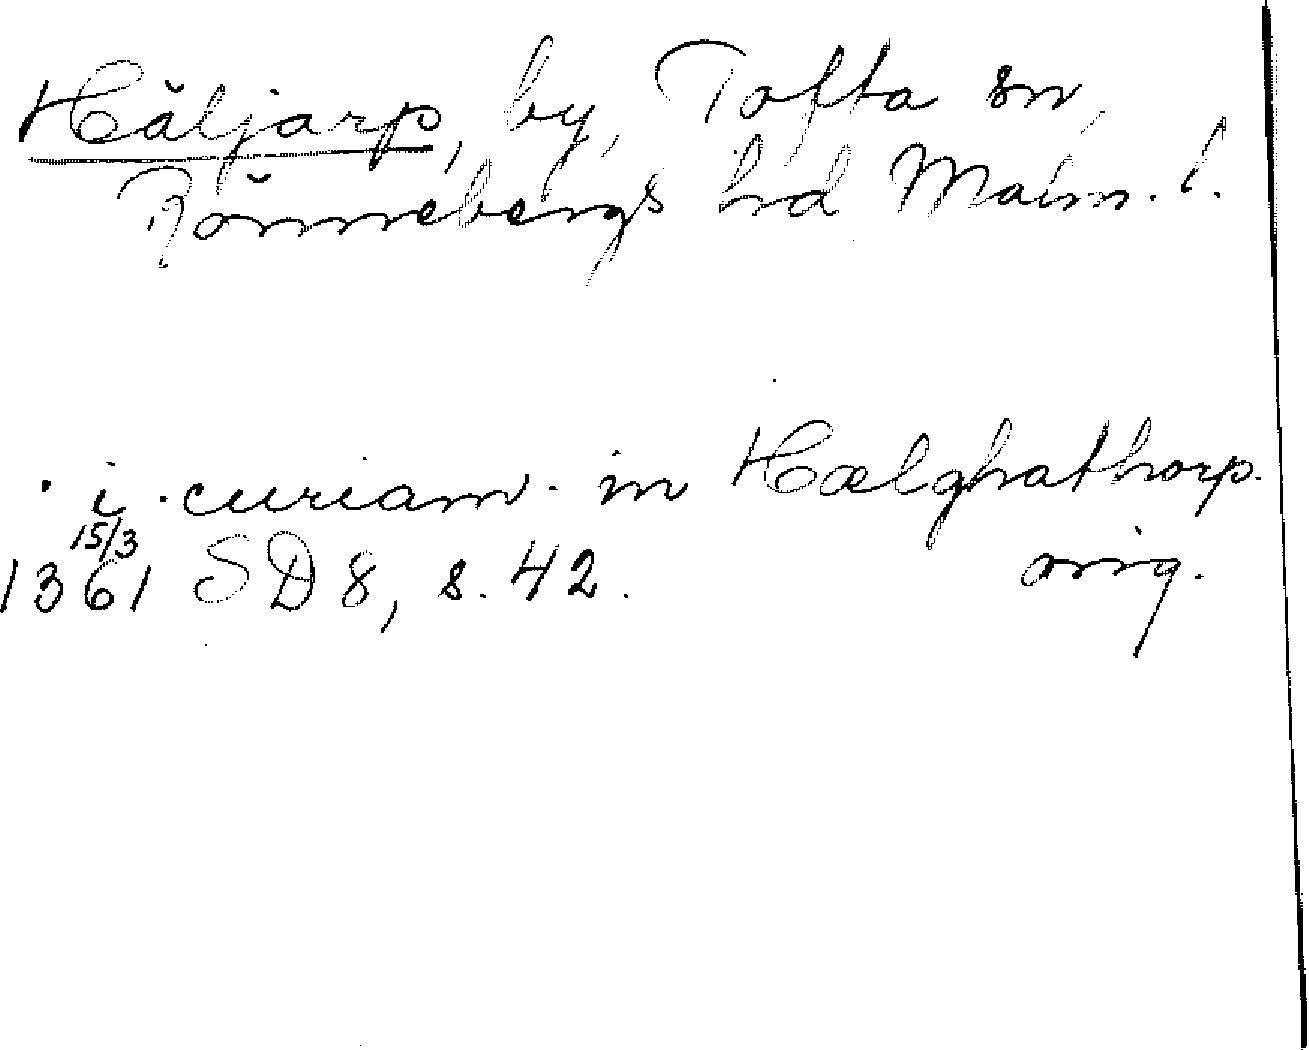 Häljarp, by, Tofta sn,
Rönnebergs hd Malm. l.
· i · curiam · in Hælghathorp.
orig.
15/3
1361 SD 8, s. 42.